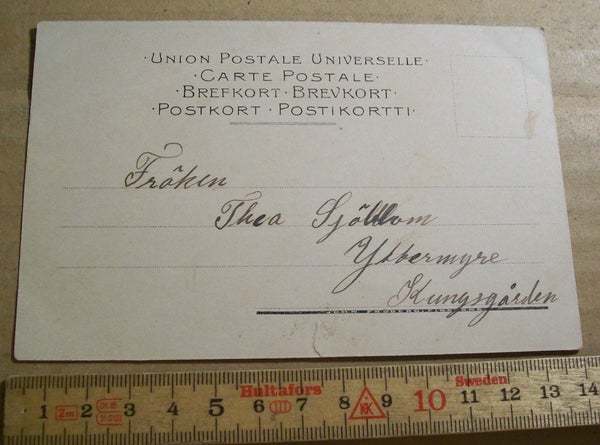 ·UNION POSTALE UNIVERSELLE·
·CARTE POSTALE·
·BREFKORT·BREVKORT·
·POSTKORT·POSTIKORTTI·
Fröken
Thea Sjöblom
Yttermyre
Kungsgården
JOHN FROBERG, FINSPONG
Hultafors
Sweden
1 2m 2 3 4 5 6 7 8 9 10 11 12 13 14